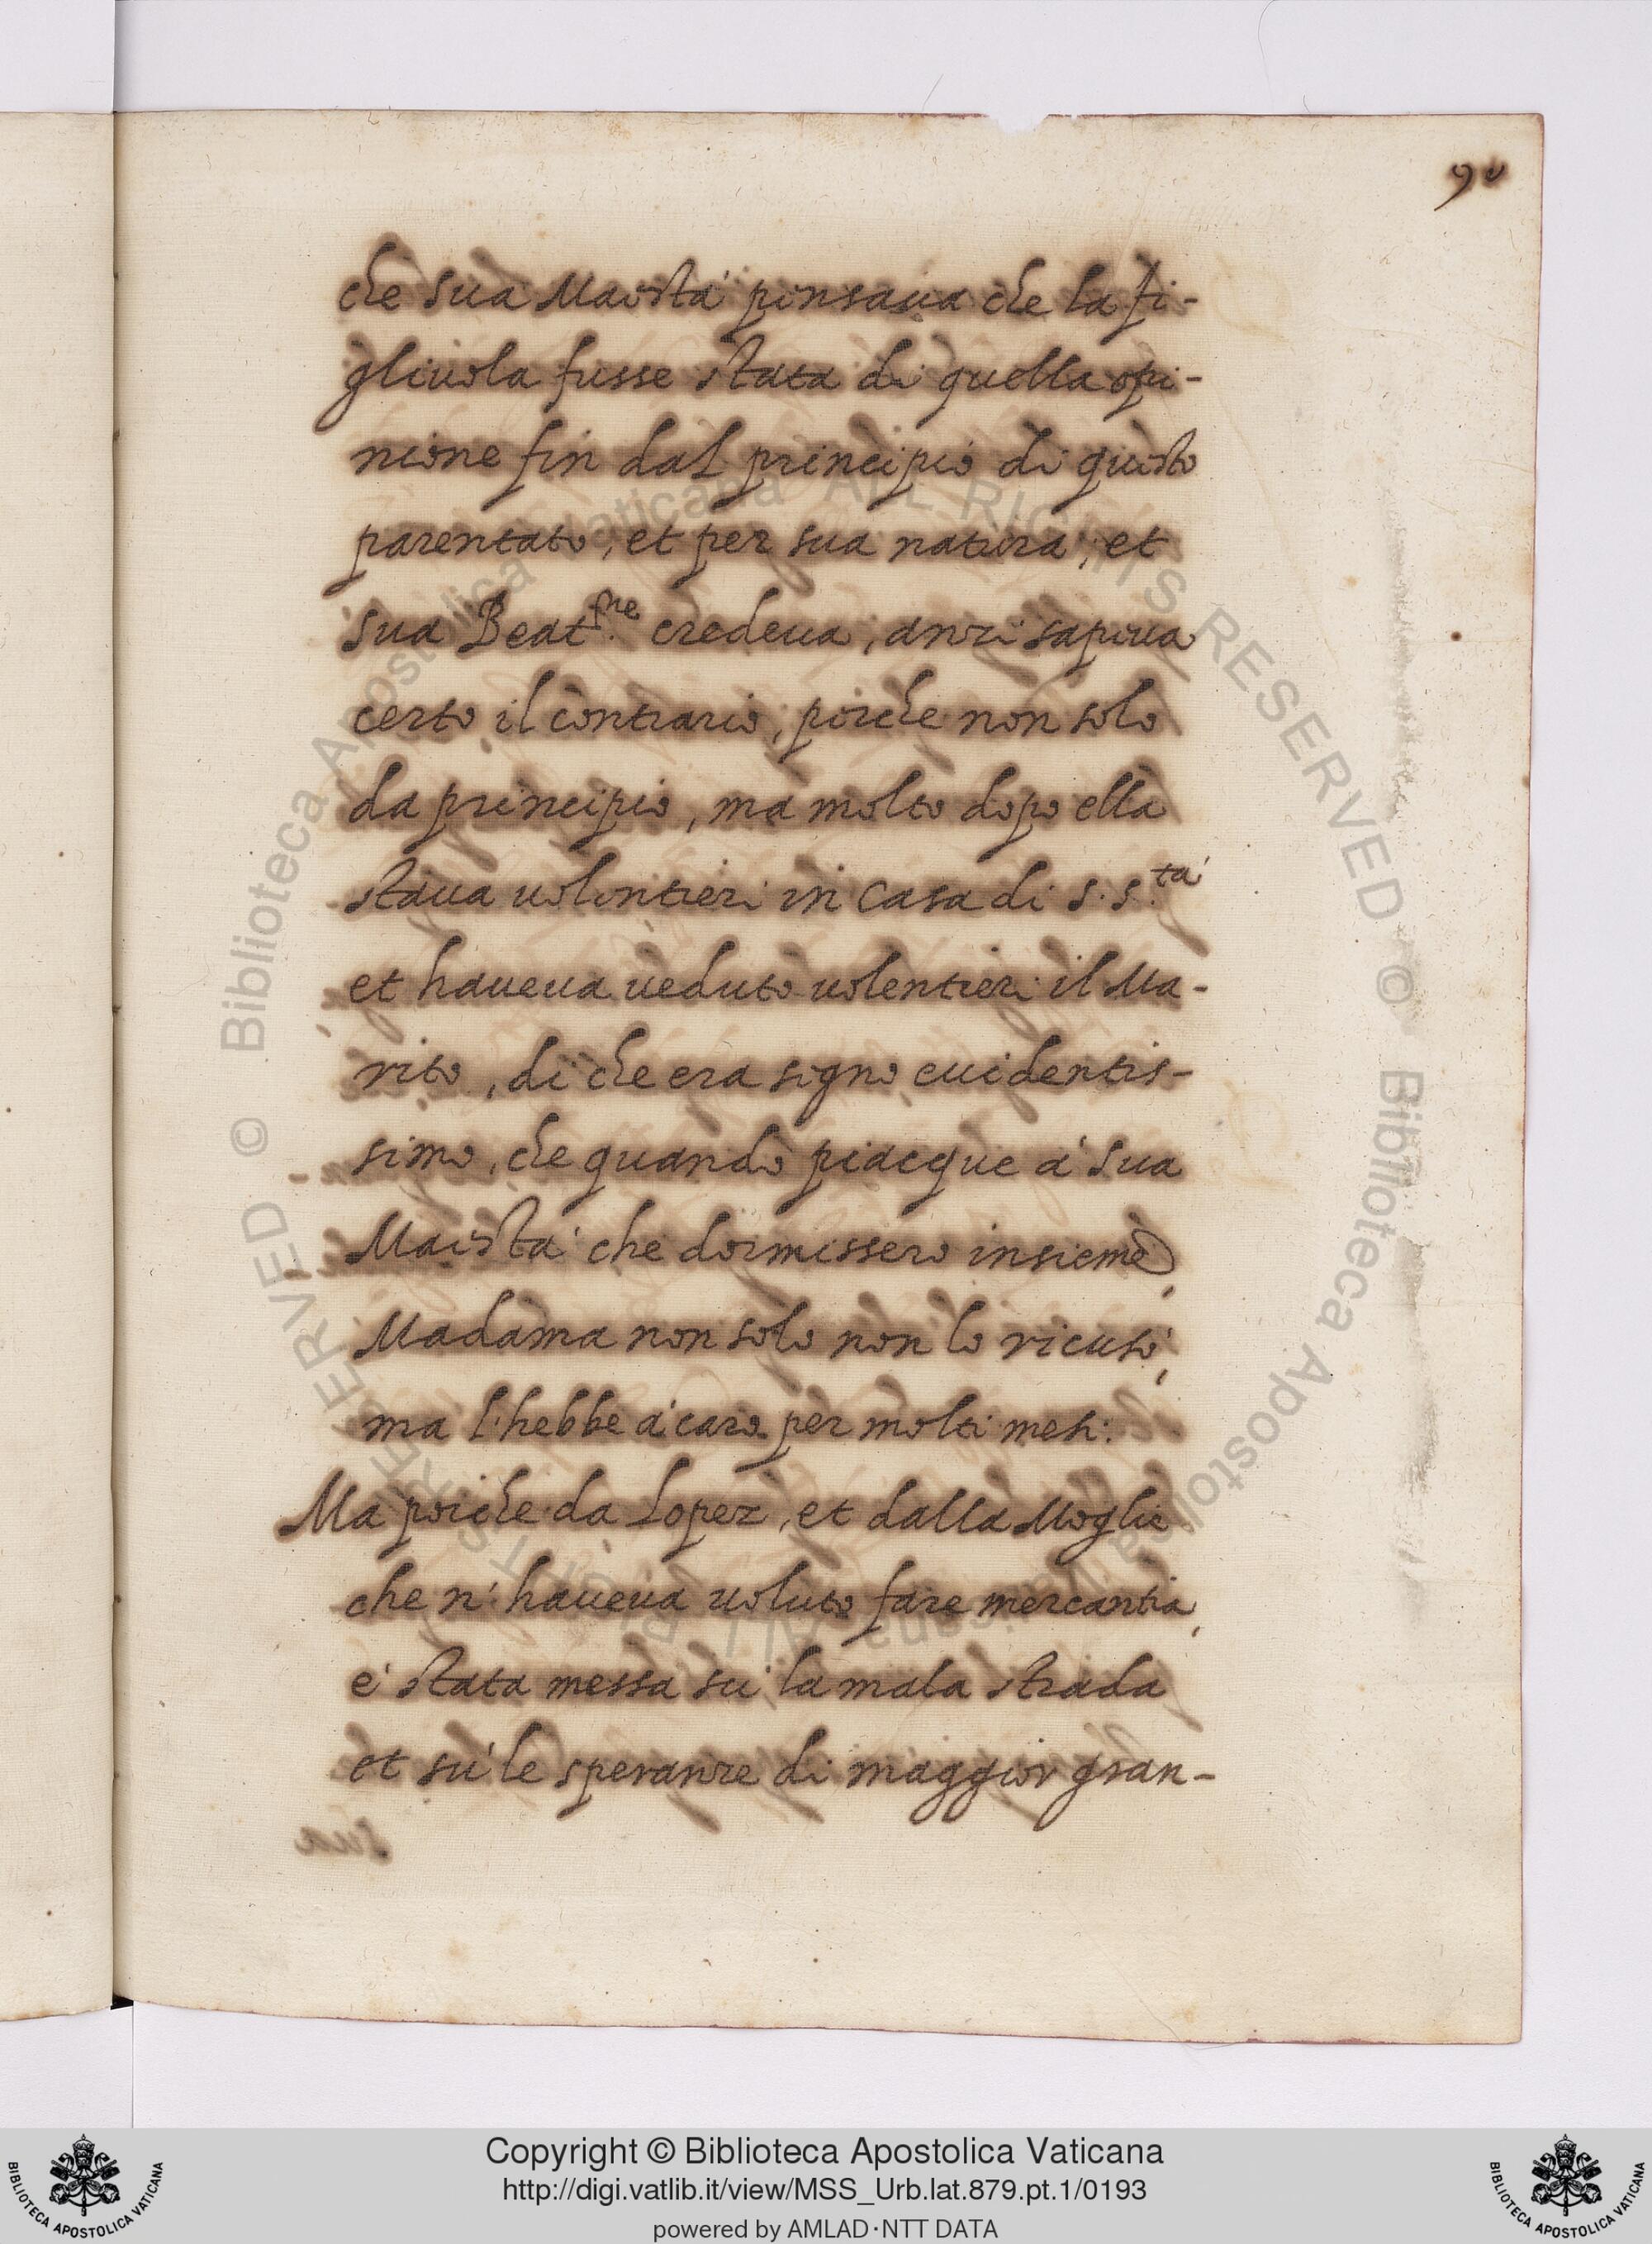 90
che sua Maestà pensaua che la fi-
gliuola fusse stata di quella opi-
nione fin dal principio di questo
parentato, et per sua natura, et
sua Beat.ne credeua, anzi sapeua
certo il contrario, poiche non solo
da principio, ma molto dopo ella
staua uolontieri in Casa di S. S.tà
et haueua ueduto uolentieri il Ma-
rito, di che era segno euidentis-
simo, che quando piacque à sua
Maestà che dormissero insieme,
Madama non solo non lo ricusò,
ma l'hebbe à caro per molti mesi:
Ma poiche da Lopez, et dalla Moglie
che n'haueua uoluto fare mercantia,
è stata messa sù la mala strada
et sù le speranze di maggior gran-
© Biblioteca Apostolica Vaticana ALL RIGHTS RESERVED © Biblioteca Apostolica Vaticana ALL RIGHTS RESERVED
Copyright © Biblioteca Apostolica Vaticana
http://digi.vatlib.it/view/MSS_Urb.lat.879.pt.1/0193
powered by AMLAD·NTT DATA
BIBLIOTECA APOSTOLICA VATICANA
BIBLIOTECA APOSTOLICA VATICANA